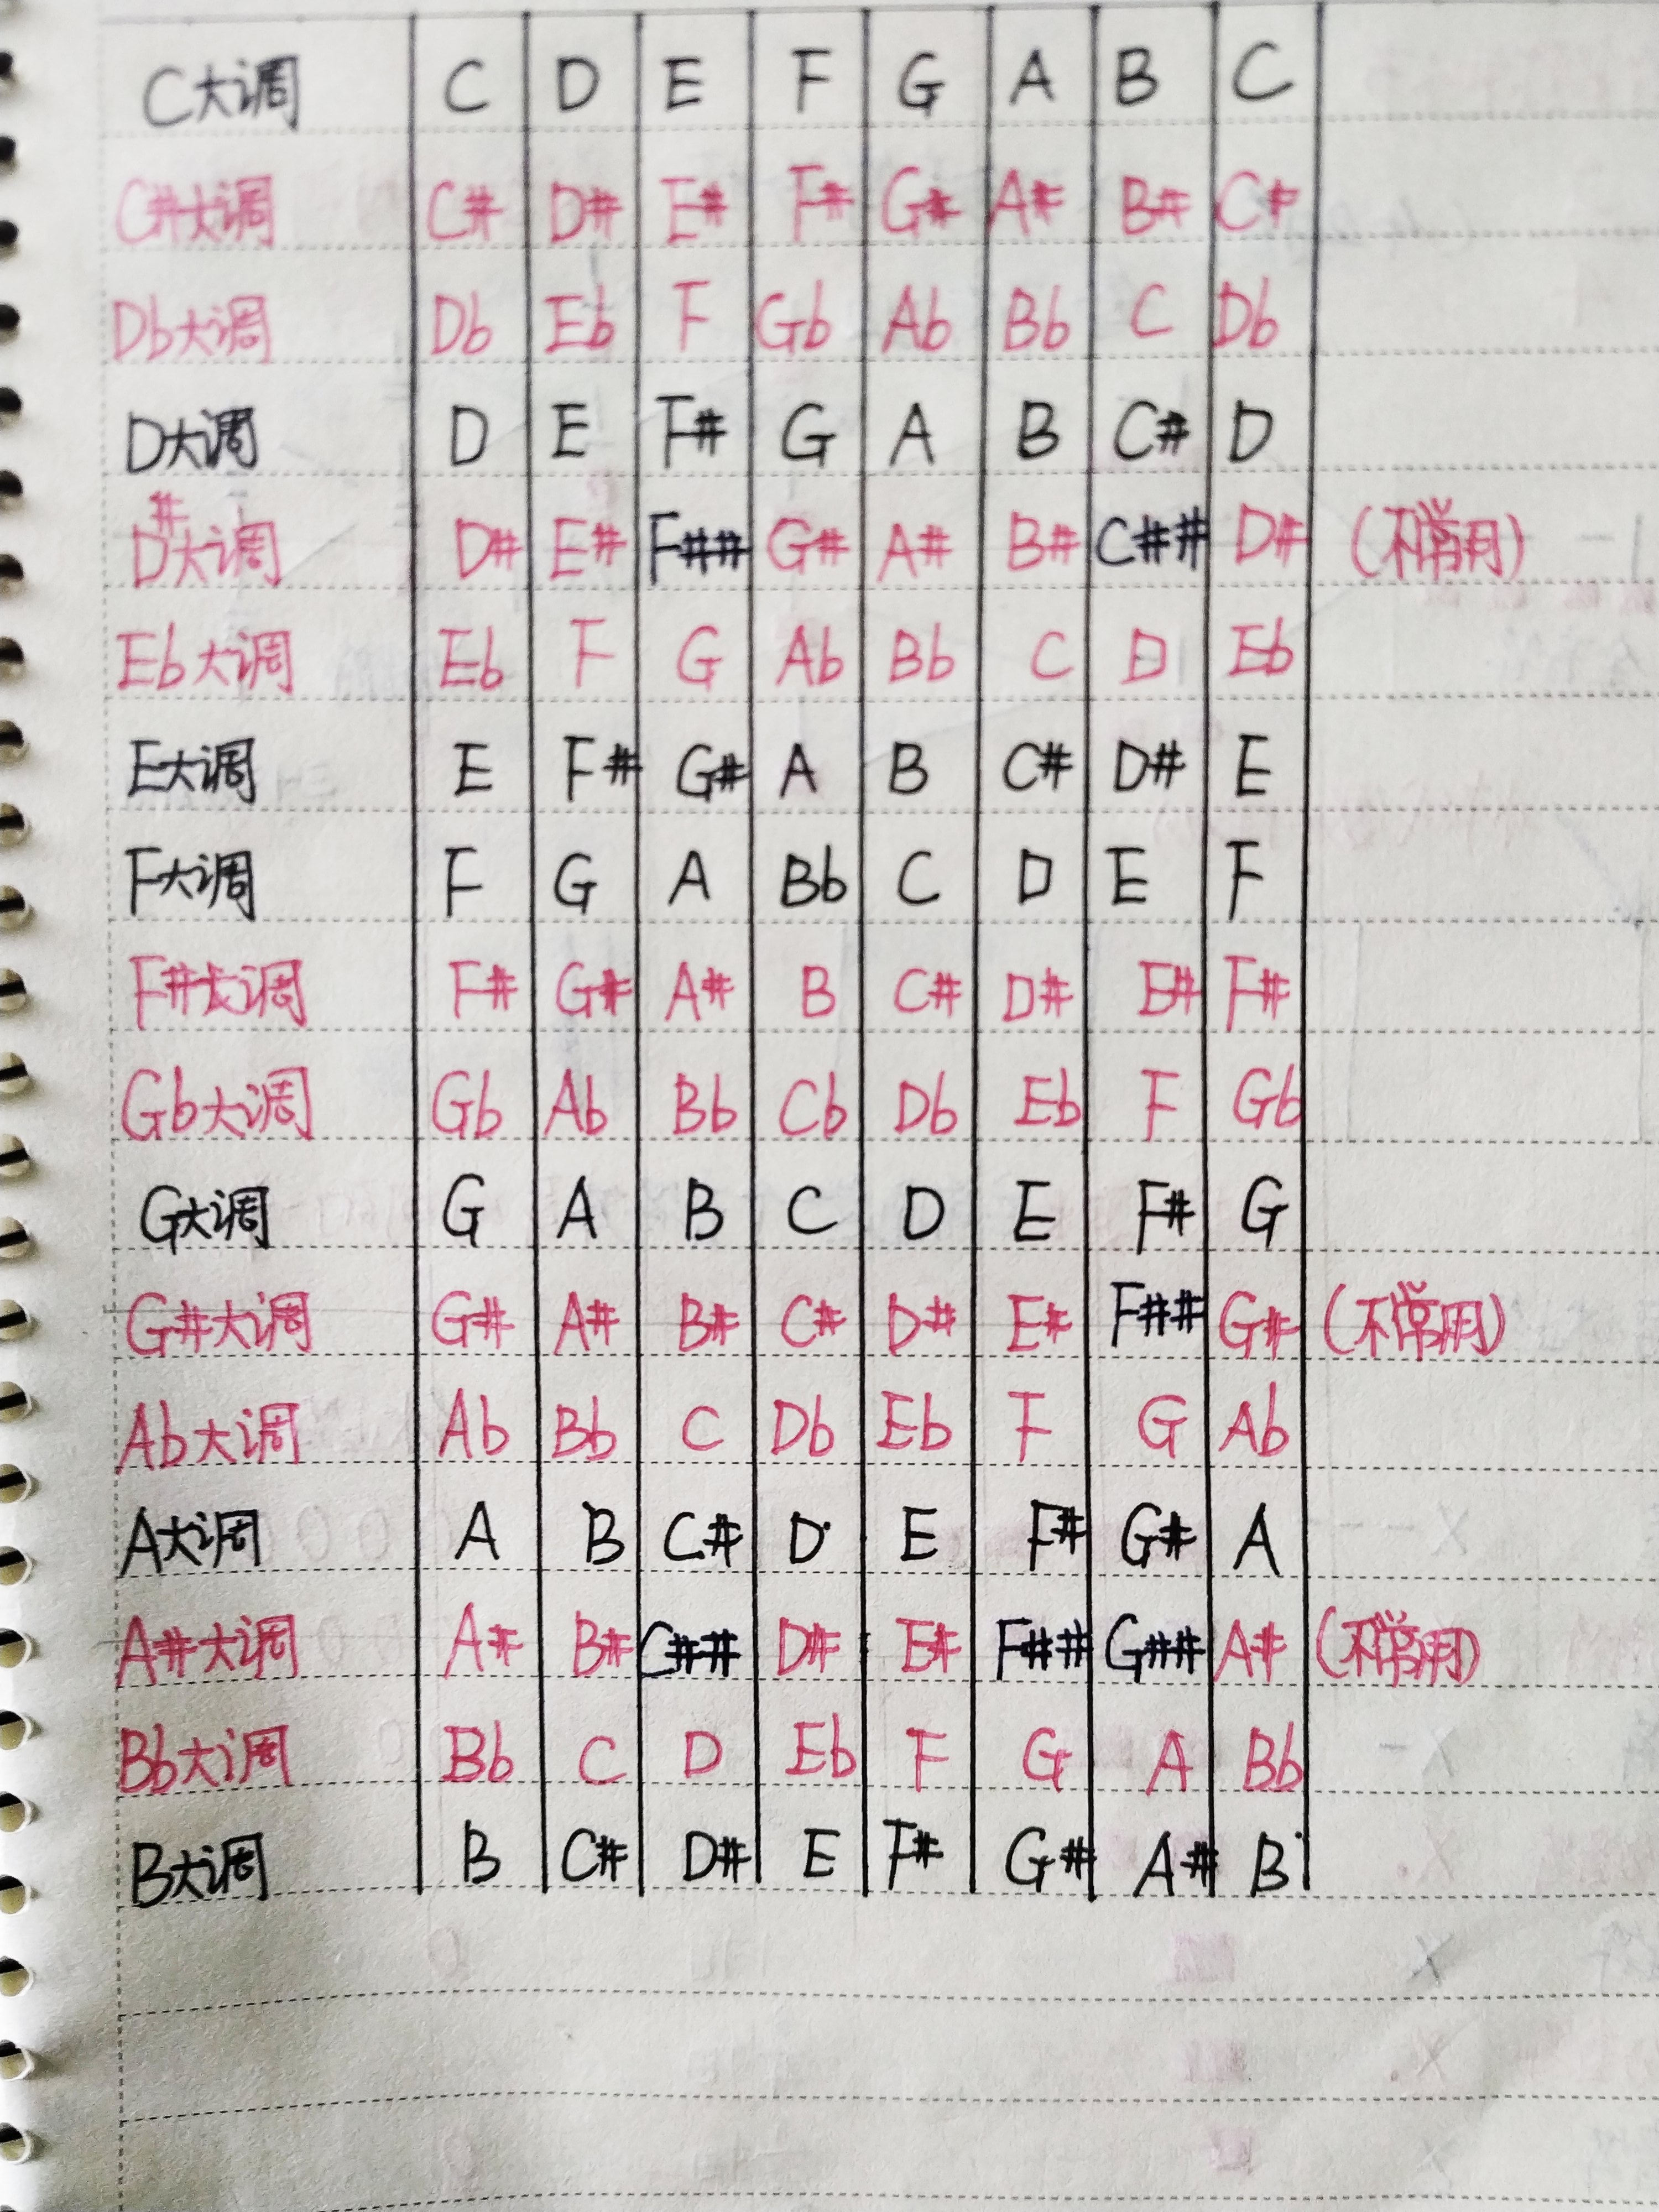 C大调 C D E F G A B C
C#大调 C# D# E# F# G# A# B# C#
Db大调 Db Eb F Gb Ab Bb C Db
D大调 D E F# G A B C# D
D#大调 D# E# F## G# A# B# C## D# (不常用)
Eb大调 Eb F G Ab Bb C D Eb
E大调 E F# G# A B C# D# E
F大调 F G A Bb C D E F
F#大调 F# G# A# B C# D# E# F#
Gb大调 Gb Ab Bb Cb Db Eb F Gb
G大调 G A B C D E F# G
G#大调 G# A# B# C# D# E# F## G# (不常用)
Ab大调 Ab Bb C Db Eb F G Ab
A大调 A B C# D E F# G# A
A#大调 A# B# C## D# E# F## G## A# (不常用)
Bb大调 Bb C D Eb F G A Bb
B大调 B C# D# E F# G# A# B